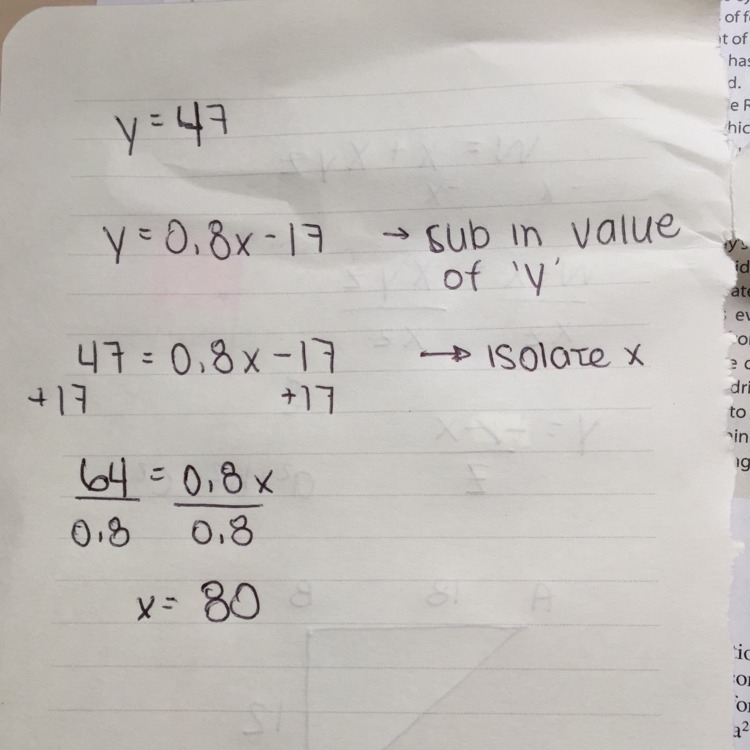 y = 47
y = 0.8x - 17 → sub in value
of 'y'
47 = 0.8x - 17 → isolate x
+17 +17
64 = 0.8x
0.8 0.8
x = 80
of f
t of
has
d.
e R
hic
y's
id
ate
ev
e c
dri
to
in
ng
a²